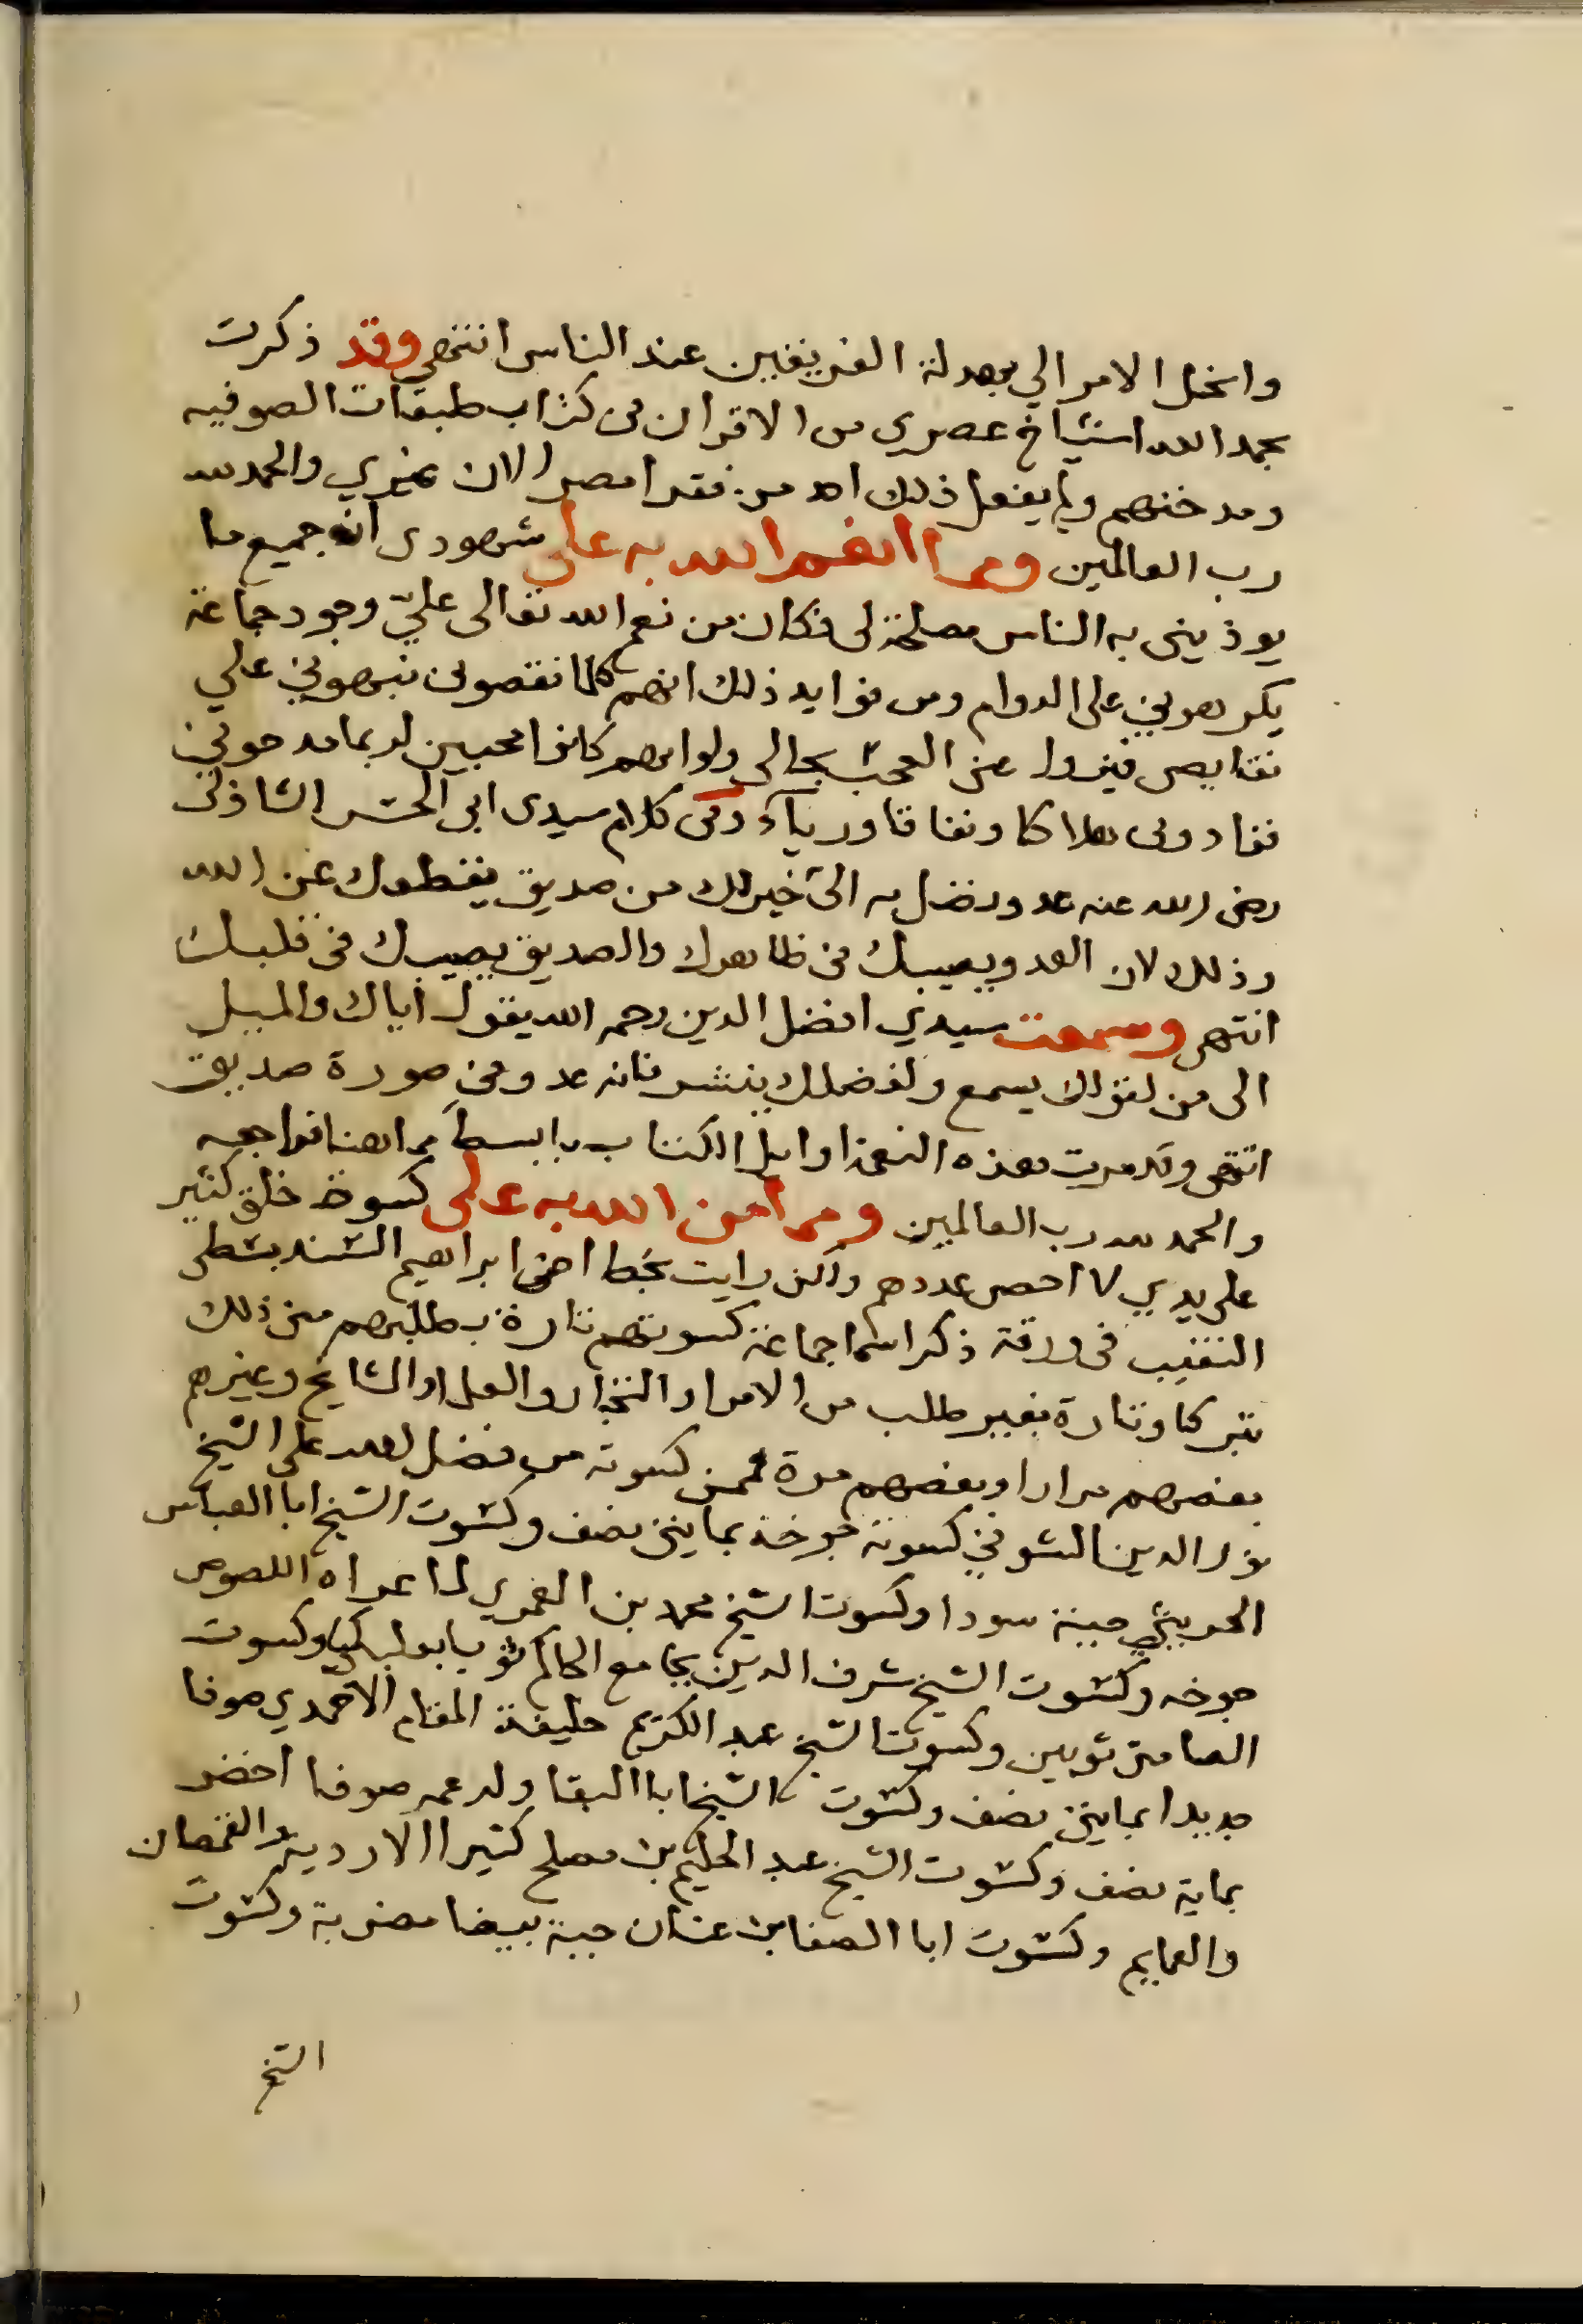 وانحل الامر الي بهدلة الفريقين عند الناس انتهى وقد ذكرت
بحمد الله اشياخ عصري من الاقران في كتاب طبقات الصوفيه
ومدحتهم ولم يفعل ذلك احد من فقرا مصر الان غيري والحمد لله
رب العالمين ومما انعم الله به علي شهودي ان جميع ما
يوذيني به الناس مصلحة لي فكان من نعم الله تعالى عليّ وجود جماعة
يكرهوني على الدوام ومن فوايد ذلك انهم كلما نقصوني نبهوني علي
نقايص فيزول عني العجب بحالي ولو انهم كانوا محبين لربما مدحوني
فزادوني هلاكا ونفاقا ورياء وفي كلام سيدي ابي الحسن الشاذلي
رضي الله عنه عدو تصل به الى خير لك من صديق يقطعك عن الله
وذلك لان العدو يصيبك في ظاهرك والصديق يصيبك في قلبك
انتهى وسمعت سيدي افضل الدين رحمه الله يقول اياك والميل
الى من لقولك يسمع ولفضلك ينشر فانه عدو في صورة صديق
انتهى وقد مرت هذه النعمة اوايل الكتاب بابسط مما هنا فراجعه
والحمد لله رب العالمين ومما من الله به على كسوة خلق كثير
على يدي لا احصي عددهم ولكن رايت بخط اخي ابراهيم السندبسطي
النقيب في ورقة ذكر اسما جماعة كسوتهم تارة بطلبهم مني ذلك
تبركا وتارة بغير طلب من الامرا والتجار والعلما والمشايخ وغيرهم
بعضهم مرارا وبعضهم مرة فممن كسوته من فضل الله على الشيخ
نور الدين الشوني كسوته جوخة بمايتي نصف وكسوت الشيخ ابا العباس
الحريثي جبة سودا وكسوت الشيخ محمد بن الغمري لما عراه اللصوص
جوخه وكسوت الشيخ شرف الدين بجامع الحاكم ثوبا بعلبكيا وكسوت
الصامت ثوبين وكسوت الشيخ عبد الكريم خليفة المقام الاحمدي صوفا
جديدا بمايتي نصف وكسوت الشيخ ابا البقا ولد عمه صوفا اخضر
بماية نصف وكسوت الشيخ عبد الحليم بن مصلح كثيرا الاردية والقمصان
والعمايم وكسوت ابا الصفا بن عنان جبة بيضا مضربة وكسوت
الشيخ